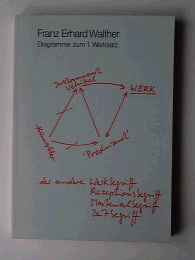 Franz Erhard Walther
Diagramme zum 1. Werksatz
Instrument
Vehikel
WERK
Hersteller
"Produzent"
der andere Werkbegriff
Rezeptionsbegriff
Materialbegriff
Zeitbegriff